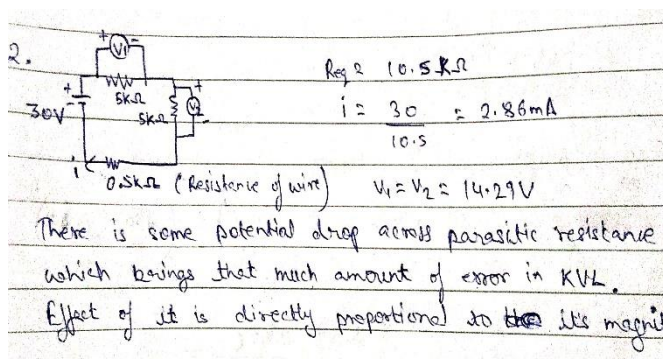 2.
+ V1 -
5KΩ
+
-
30V
5KΩ
+
V2
-
i
0.5KΩ (Resistance of wire)
Req = 10.5 KΩ
i = 30 / 10.5 = 2.86mA
V1 = V2 = 14.29V
There is some potential drop across parasitic resistance
which brings that much amount of error in KVL.
Effect of it is directly proportional to it's magni